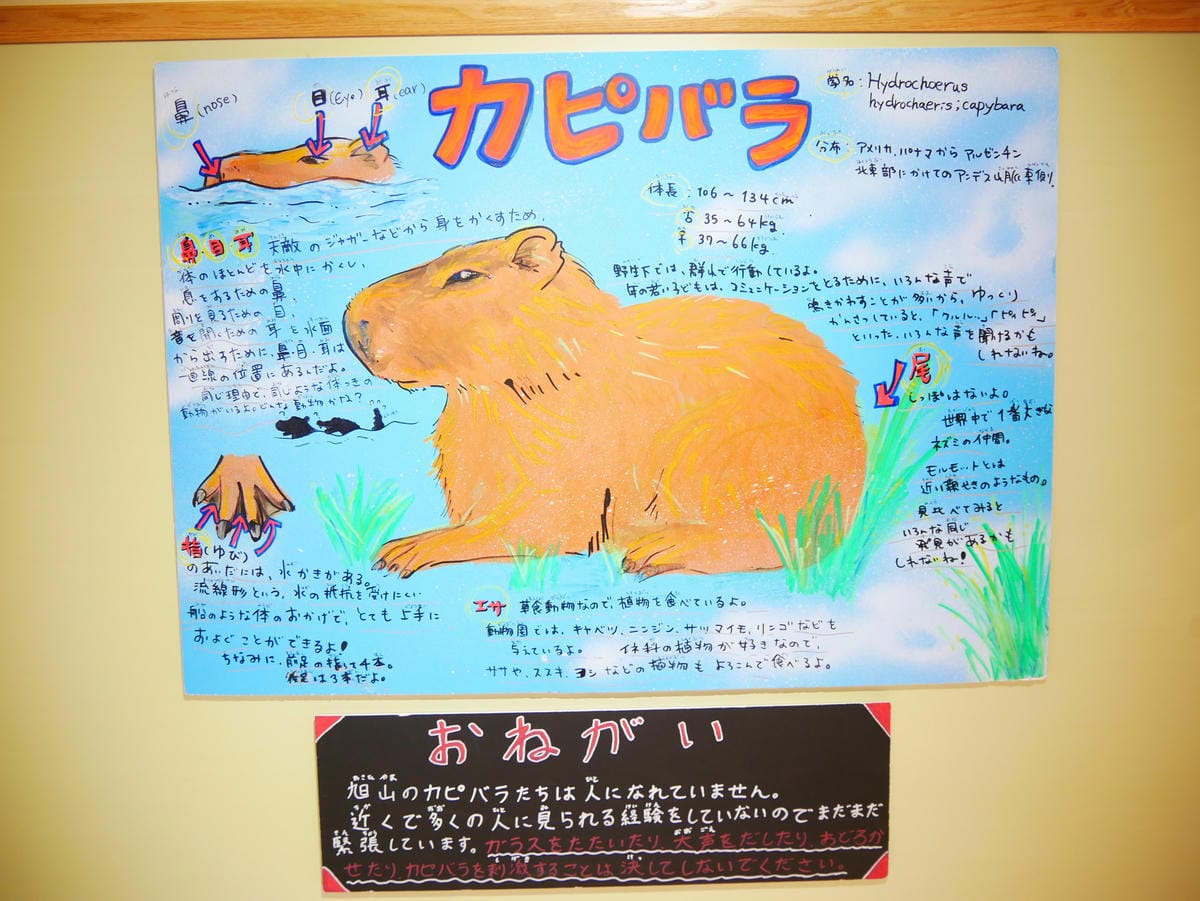 カピバラ
学名：Hydrochoerus
hydrochaeris；capybara
分布：アメリカ、パナマから アルゼンチン
北東部にかけてのアンデス山脈東側
体長：106～134cm
♂ 35～64kg
♀ 37～66kg
鼻(nose)
目(Eye)
耳(ear)
鼻・目・耳 天敵のジャガーなどから身をかくすため、
体のほとんどを水中にかくし、
息をするための鼻、
周りを見るための目、
音を聞くための耳を水面
から出すために、鼻・目・耳は
一直線の位置にあるんだよ。
同じ理由で、同じような体つきの
動物がいるよ。どんな動物かな？
野生下では、群れで行動しているよ。
年の若い子どもは、コミュニケーションをとるために、いろんな声で
鳴きかわすことが多いから、ゆっくり
かんさつしていると、「クルル…」「ピィピィ」
といった、いろんな声を聞けるかも
しれないね。
尾
しっぽはないよ。
世界中で1番大きな
ネズミの仲間。
モルモットとは
近い親せきのようなもの。
見比べてみると
いろんな同じ
発見があるかも
しれないね！
指(ゆび)
のあいだには、水かきがある。
流線形という、水の抵抗を受けにくい
船のような体のおかげで、とても上手に
およぐことができるよ！
ちなみに、前足の指は4本。
後足は3本だよ。
エサ 草食動物なので、植物を食べているよ。
動物園では、キャベツ、ニンジン、サツマイモ、リンゴなどを
与えているよ。 イネ科の植物が好きなので、
ササや、ススキ、ヨシなどの植物もよろこんで食べるよ。
おねがい
旭山のカピバラたちは人になれていません。
近くで多くの人に見られる経験をしていないのでまだまだ
緊張しています。ガラスをたたいたり、大声をだしたり、おどろか
せたり、カピバラを刺激することは決してしないでください。